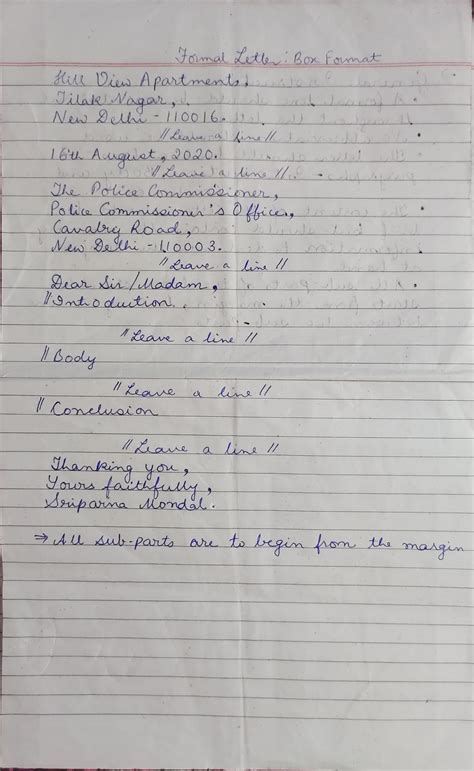 Formal Letter: Box Format
Hill View Apartments,
Tilak Nagar,
New Delhi - 110016.
// Leave a line //
16th August, 2020.
// Leave a line //
The Police Commissioner,
Police Commissioner's Office,
Cavalry Road,
New Delhi - 110003.
// Leave a line //
Dear Sir/Madam,
// Introduction
// Leave a line //
// Body
// Leave a line //
// Conclusion
// Leave a line //
Thanking you,
Yours faithfully,
Sriparna Mondal.
⇒ All sub-parts are to begin from the margin